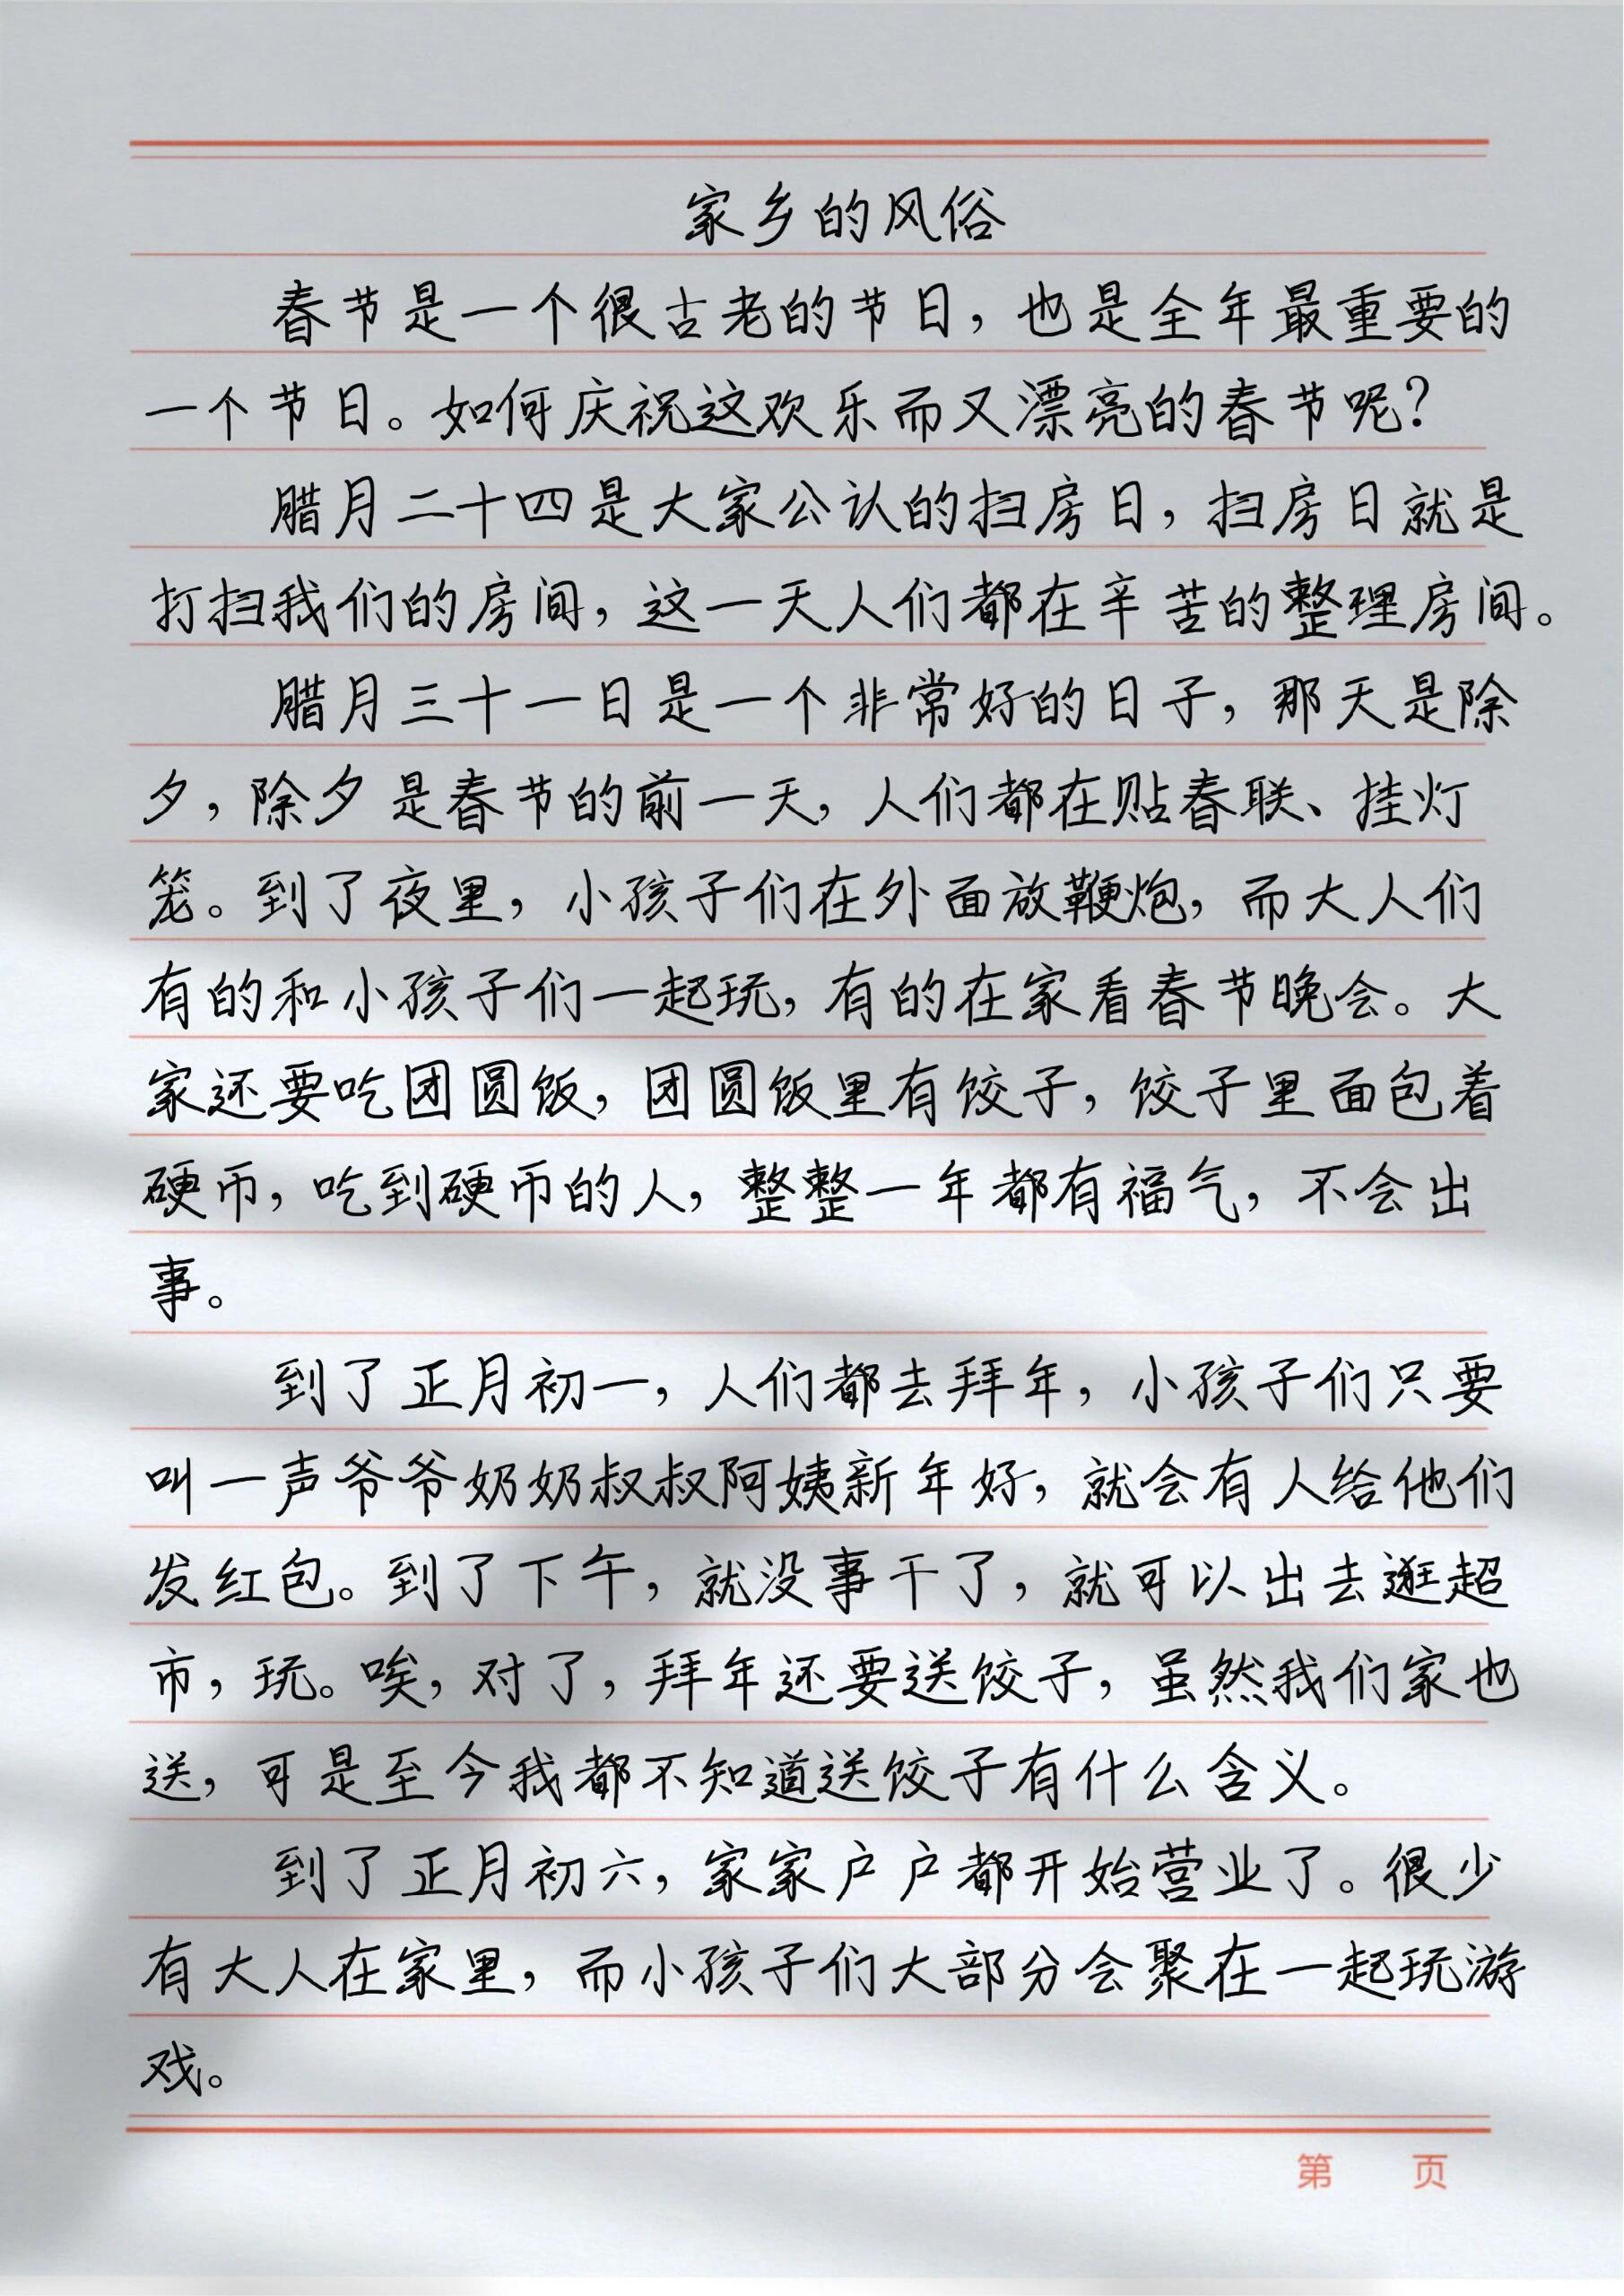 家乡的风俗
春节是一个很古老的节日，也是全年最重要的
一个节日。如何庆祝这欢乐而又漂亮的春节呢？
腊月二十四是大家公认的扫房日，扫房日就是
打扫我们的房间，这一天人们都在辛苦的整理房间。
腊月三十一日是一个非常好的日子，那天是除
夕，除夕是春节的前一天，人们都在贴春联、挂灯
笼。到了夜里，小孩子们在外面放鞭炮，而大人们
有的和小孩子们一起玩，有的在家看春节晚会。大
家还要吃团圆饭，团圆饭里有饺子，饺子里面包着
硬币，吃到硬币的人，整整一年都有福气，不会出
事。
到了正月初一，人们都去拜年，小孩子们只要
叫一声爷爷奶奶叔叔阿姨新年好，就会有人给他们
发红包。到了下午，就没事干了，就可以出去逛超
市，玩。唉，对了，拜年还要送饺子，虽然我们家也
送，可是至今我都不知道送饺子有什么含义。
到了正月初六，家家户户都开始营业了。很少
有大人在家里，而小孩子们大部分会聚在一起玩游
戏。
第 页